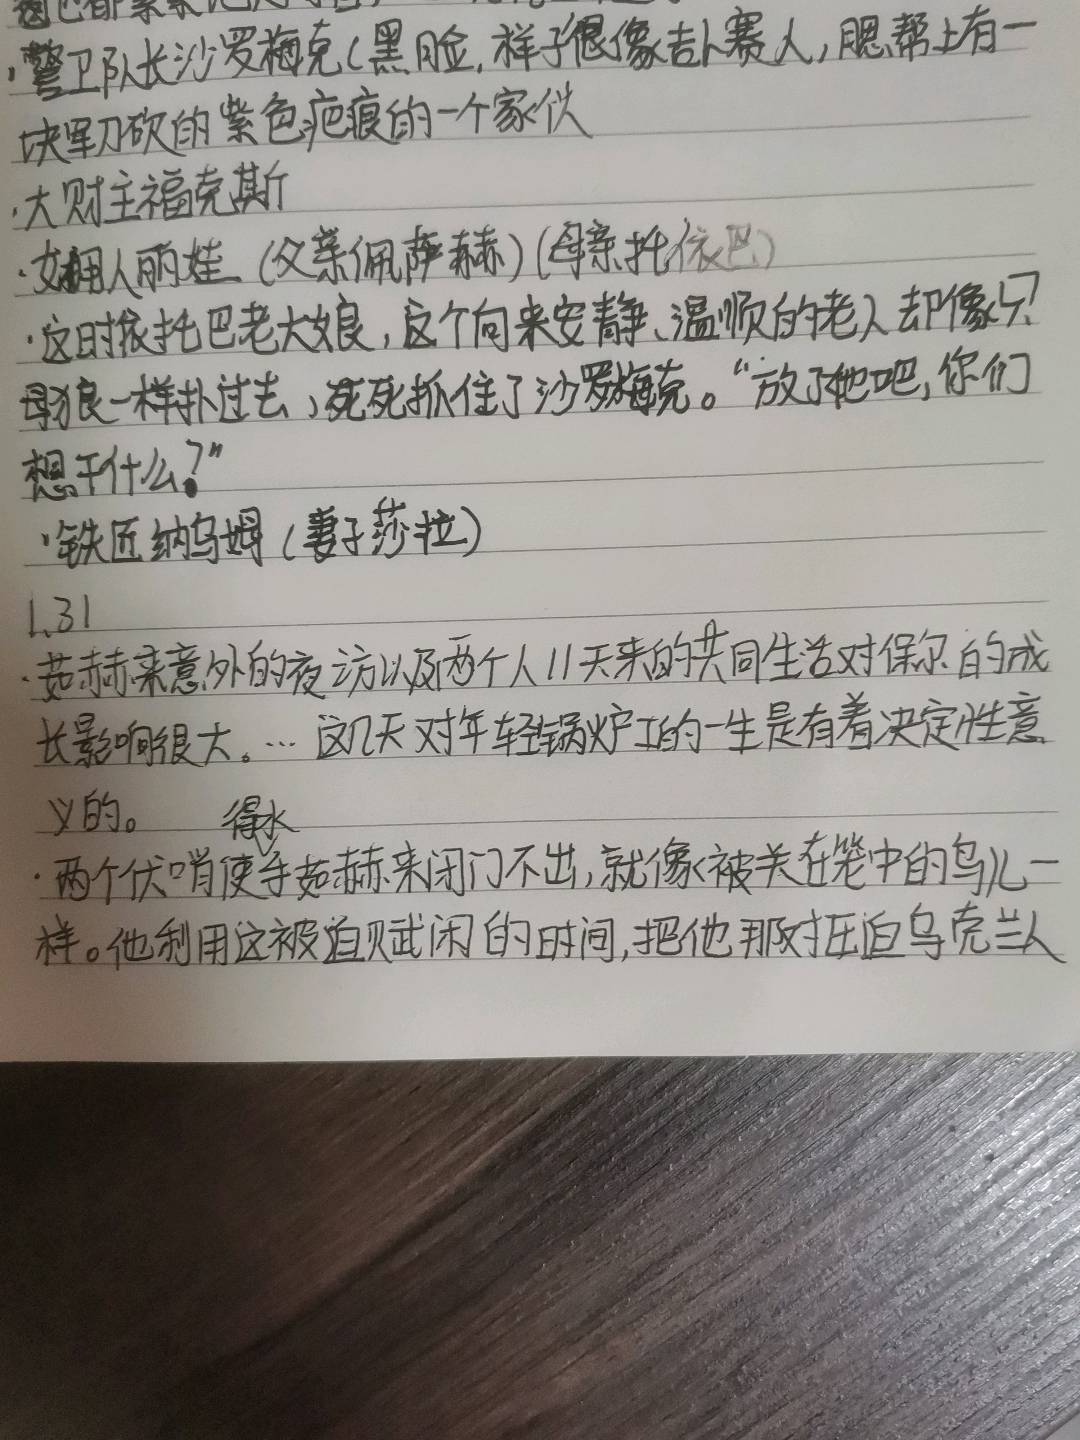 ·警卫队长沙罗梅克(黑脸,样子很像吉卜赛人,腮帮上有一
块军刀砍的紫色疤痕的一个家伙
·大财主福克斯
·女佣人丽娃 (父亲佩萨赫)(母亲托依巴)
·这时依托巴老大娘,这个向来安静、温顺的老人却像只
母狼一样扑过去,死死抓住了沙罗梅克。“放了她吧,你们
想干什么?”
·铁匠纳乌姆(妻子莎拉)
1.31
·茹赫来意外的夜访以及两个人11天来的共同生活对保尔的成
长影响很大。… 这几天对年轻锅炉工的一生是有着决定性意
义的。
得水
·两个伏哨使手茹赫来闭门不出,就像被关在笼中的鸟儿一
样。他利用这被迫赋闲的时间,把他那对压迫乌克兰人